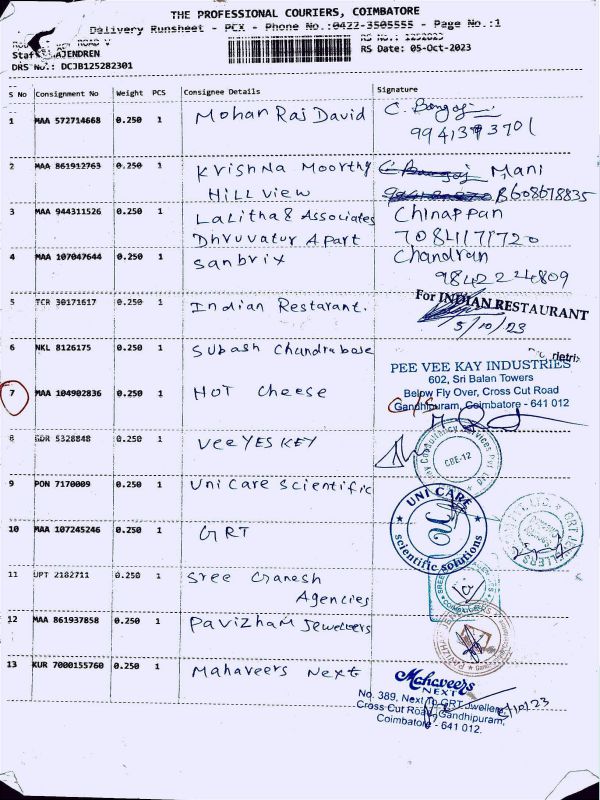 THE PROFESSIONAL COURIERS, COIMBATORE
Delivery Runsheet - PCX - Phone No.:0422-3505555 - Page No.:1
ROAD V
RS No.: 1252023
Staff JENDREN
RS Date: 05-Oct-2023
DRS No.: DCJB125282301
S No Consignment No Weight PCS Consignee Details Signature
1 MAA 572714668 0.250 1 Mohan Raj David
2 MAA 861912763 0.250 1 Krishna Moorthy Mani
Hill view 8608678835
3 MAA 944311526 0.250 1 Lalitha & Associates Chinappan
Dhruvatur Apart
4 MAA 107047644 0.250 1 Sanbrix Chandran
9842224809
5 TCR 30171617 0.250 1 Indian Restarant. For INDIAN RESTAURANT
5/10/23
6 NKL 8126175 0.250 1 Subash Chandrabose
PEE VEE KAY INDUSTRIES
602, Sri Balan Towers
7 MAA 104902836 0.250 1 Hot Cheese Below Fly Over, Cross Cut Road
Gandhipuram, Coimbatore - 641 012
8 GDR 5328848 0.250 1 Vee YES KEY
Consultancy Services Pvt Ltd
CBE-12
9 PON 7170009 0.250 1 Uni Care Scientific
UNI CARE
scientific solutions
10 MAA 107245246 0.250 1 GRT
GRT JEWELLERS
11 UPT 2182711 0.250 1 Sree Ganesh
Agencies
12 MAA 861937858 0.250 1 Pavizham Jewellers
13 KUR 7000155760 0.250 1 Mahaveers Next
Mahaveers
NEXT
No. 389, Next To GRT Jwellers
Cross Cut Road, Gandhipuram,
Coimbatore - 641 012.